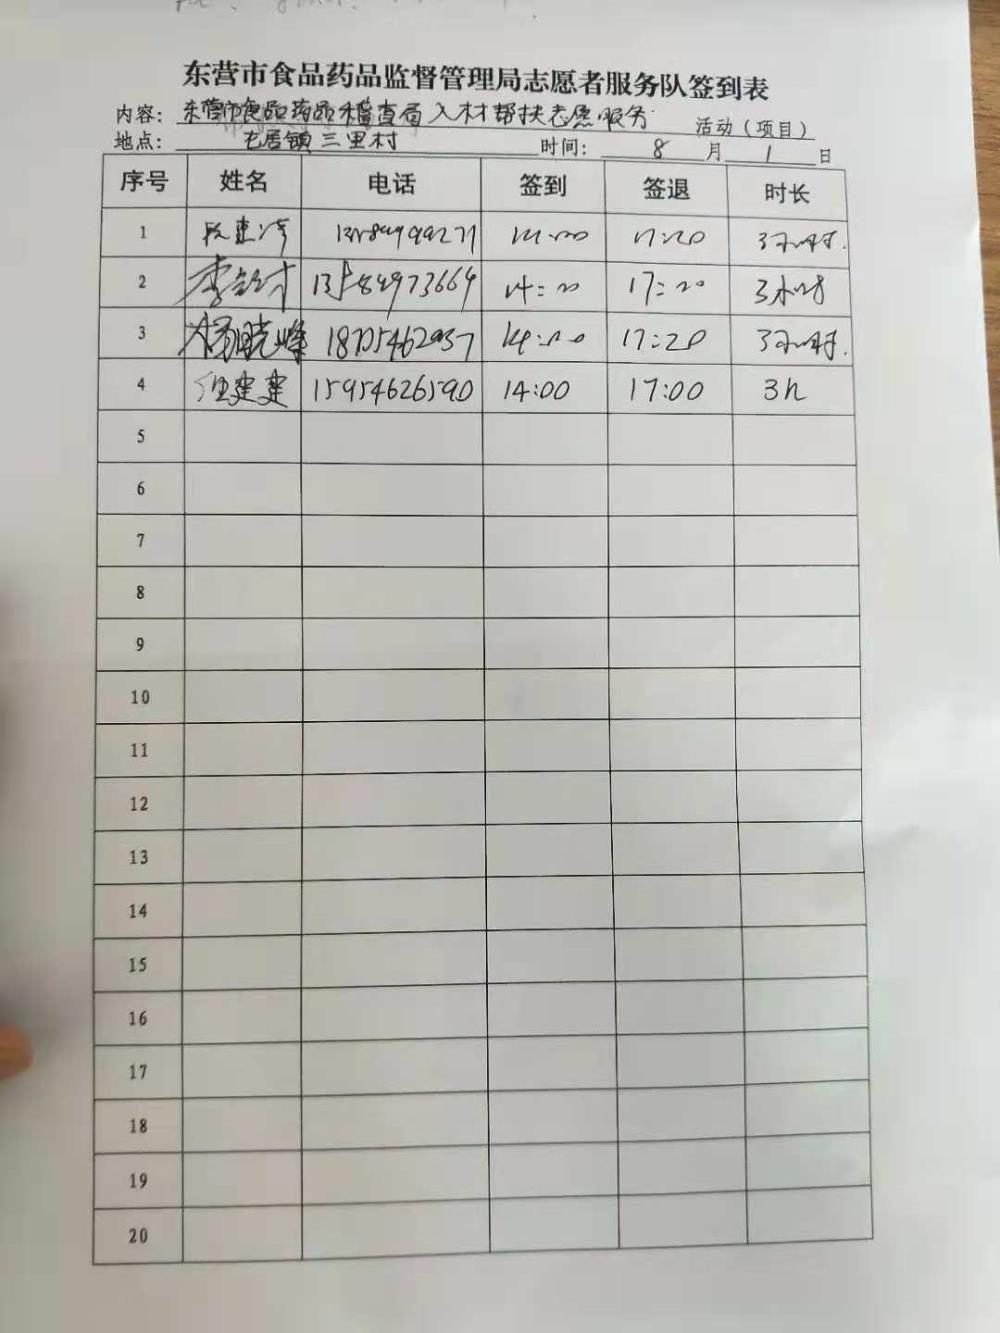 东营市食品药品监督管理局志愿者服务队签到表
内容：东营市食品药品稽查局入村帮扶志愿服务 活动（项目）
地点：屯居镇三里村 时间：8月1日
序号 姓名 电话 签到 签退 时长
1 14:00 17:20 3小时.
2 14:00 17:20 3小时
3 杨晓峰 14:00 17:20 3小时.
4 建建 15954626590 14:00 17:00 3h
5
6
7
8
9
10
11
12
13
14
15
16
17
18
19
20